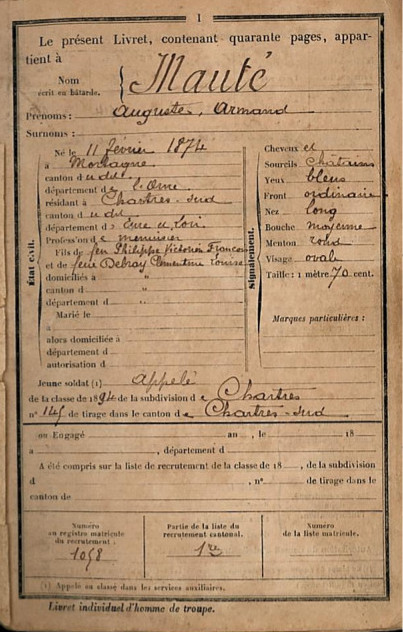 1
Le présent Livret, contenant quarante pages, appar-
tient à
Nom
écrit en bâtarde.
Mauté
Prénoms: Auguste, Armand
Surnoms:
État civil.
Né le 11 février 1874
à Mortagne
canton d u dit
département d e l'Orne
résidant à Chartres-sud
canton d u dit
département d' Eure et Loir
Profession de menuisier
Fils de feu Philippe Victorien François
et de feue Debray Clémentine Louise
domiciliés à "
canton d "
département d "
Marié le
à
alors domiciliée à
département d
autorisation d
Signalement.
Cheveux et
Sourcils châtains
Yeux bleus
Front ordinaire
Nez long
Bouche moyenne
Menton rond
Visage ovale
Taille: 1 mètre 70 cent.
Marques particulières:
Jeune soldat (1) appelé
de la classe de 1894 de la subdivision d e Chartres
n° 145 de tirage dans le canton d e Chartres-sud
ou Engagé an , le 18
à , département d
A été compris sur la liste de recrutement de la classe de 18 , de la subdivision
d , n° de tirage dans le
canton de
Numéro
au registre matricule
du recrutement:
1058
Partie de la liste du
recrutement cantonal.
1re
Numéro
de la liste matricule.
(1) Appelé ou classé dans les services auxiliaires.
Livret individuel d'homme de troupe.